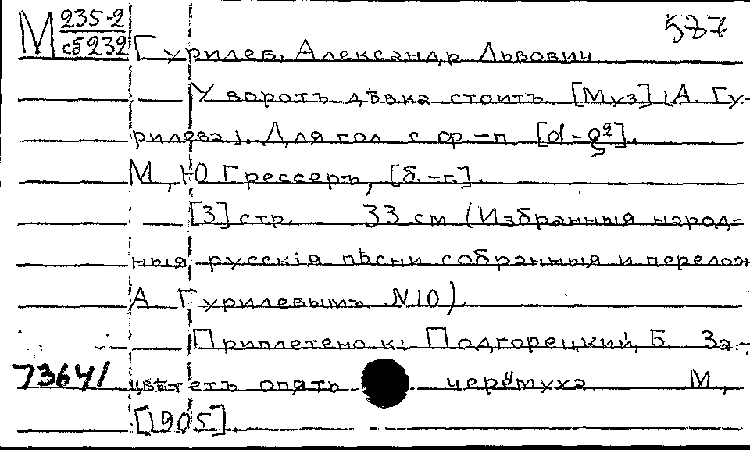 М 235-2
сб 232
587
Гурилев, Александр Львович
У воротъ дѣвка стоитъ [Муз] (А. Гу-
рилева). Для гол. с ф.-п. [d-g²].
М., Ю Грессеръ, [б.-г.].
[3] стр. 33 см (Избранныя народ-
ныя русскія пѣсни собранныя и перелож
А. Гурилевымъ N10).
Приплетено к: Подгорецкий, Б. За-
73641 цвѣтетъ опять черёмуха М.,
[1905].